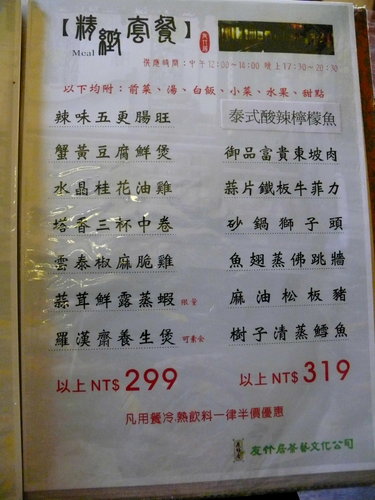 【精緻套餐】
Meal
供應時間：中午12:00~14:00 晚上17:30~20:30
以下均附：前菜、湯、白飯、小菜、水果、甜點
辣味五更腸旺
泰式酸辣檸檬魚
蟹黃豆腐鮮煲
御品富貴東坡肉
水晶桂花油雞
蒜片鐵板牛菲力
塔香三杯中卷
砂鍋獅子頭
雲泰椒麻脆雞
魚翅蒸佛跳牆
蒜茸鮮露蒸蝦 限量
麻油松板豬
羅漢齋養生煲 可素食
樹子清蒸鱈魚
以上 NT$ 299
以上 NT$ 319
凡用餐冷.熱飲料一律半價優惠
友竹居茶藝文化公司